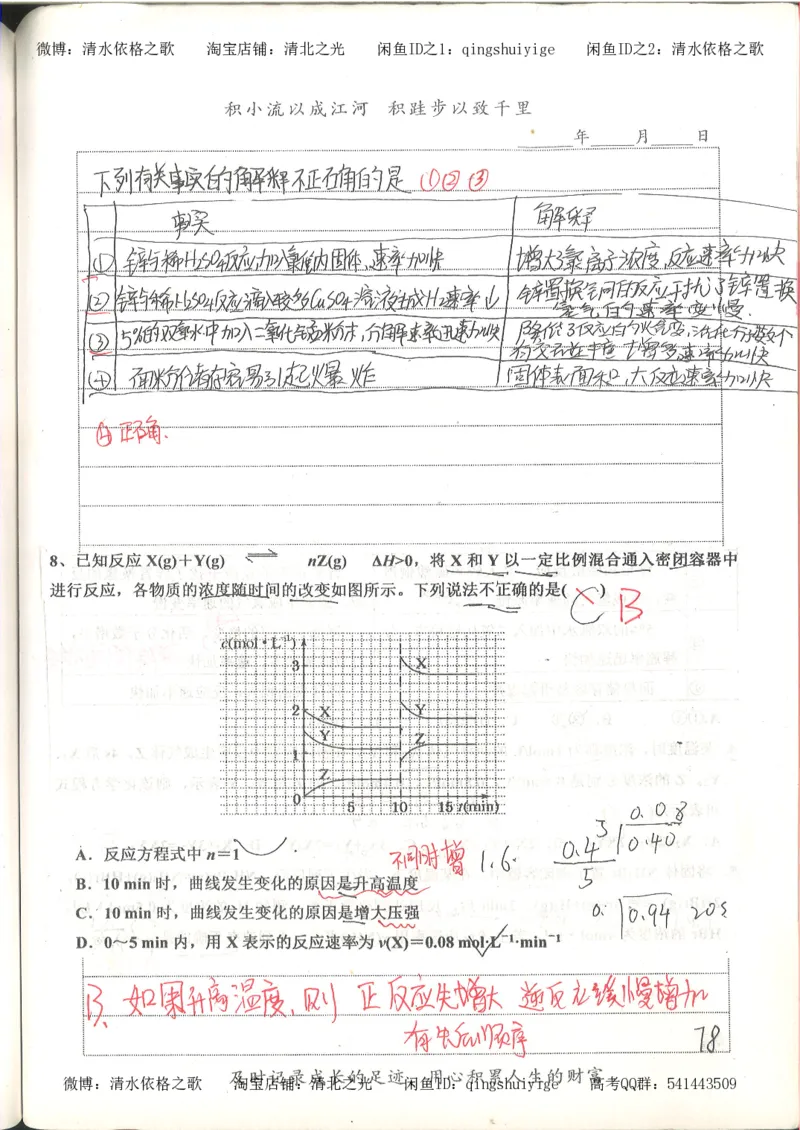 微博：清水依格之歌 淘宝店铺：清北之光 闲鱼ID之1：qingshuiyige 闲鱼ID之2：清水依格之歌
积小流以成江河 积跬步以致千里
年 月 日
下列有关事实的解释不正确的是 ①②③
事实 解释
① 锌与稀H₂SO₄反应,加入氯化钠固体,速率加快 增大了氯离子浓度,反应速率加快
② 锌与稀H₂SO₄反应滴入较多CuSO₄溶液生成H₂速率↓ 锌置换铜的反应干扰了锌置换
氢气的速率变慢.
③ 5%的双氧水中加入二氧化锰粉末,分解速率迅速加快 降低了反应的 活化分子数
速率加快
④ 面粉 容易引起爆炸 固体表面积大反应速率加快
④正确.
8、已知反应 X(g)＋Y(g) ⇌ nZ(g) ΔH>0，将 X 和 Y 以一定比例混合通入密闭容器中
进行反应，各物质的浓度随时间的改变如图所示。下列说法不正确的是( C ) B
c(mol·L⁻¹)
3 X
2 X Y
Y Z
1
Z
0 5 10 15 t(min)
0.08
0.4 5 0.40
A．反应方程式中 n＝1 不同时增 1.6. 5
B．10 min 时，曲线发生变化的原因是升高温度
C．10 min 时，曲线发生变化的原因是增大压强 0. 0.94 203
D．0～5 min 内，用 X 表示的反应速率为 v(X)＝0.08 mol·L⁻¹·min⁻¹
B、如果升高温度,则 正反应先增大 逆反应缓慢增加
有先后顺序 78
及时记录成长的足迹 用心积累人生的财富
微博：清水依格之歌 淘宝店铺：清北之光 闲鱼ID：qingshuiyige 高考QQ群：541443509